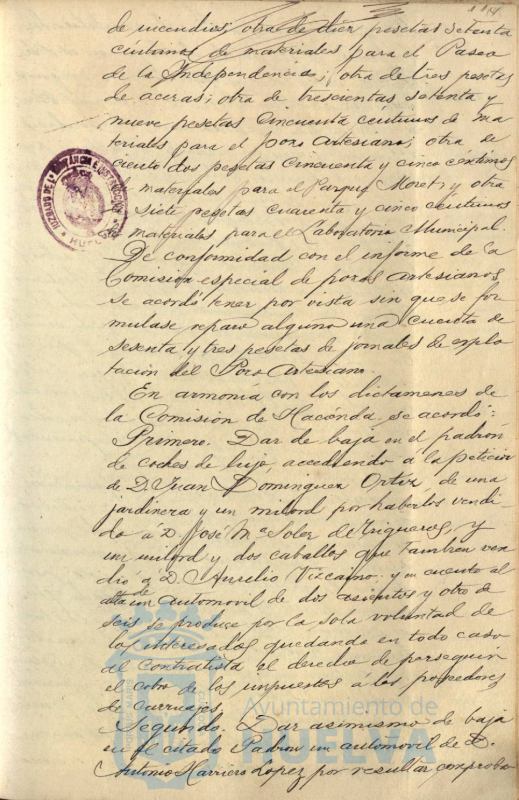 114
de incendios; otra de diez pesetas setenta
centimos de materiales para el Paseo
de la Independencia; otra de tres pesetas
de aceras; otra de trescientas setenta y
nueve pesetas cincuenta centimos de ma
teriales para el pozo Artesiano; otra de
ciento dos pesetas cincuenta y cinco céntimos
materiales para el Parque Moret, y otra
siete pesetas cuarenta y cinco centimos
materiales para el Laboratorio Municipal.
De conformidad con el informe de la
Comision especial de pozos Artesianos,
se acordó tener por vista sin que se for
mulase reparo alguno una cuenta de
sesenta y tres pesetas de jornales de explo
tación del Pozo Artesiano.
En armonía con los dictamenes de
la Comision de Hacienda, se acordó:
Primero. Dar de baja en el padrón
de coches de lujo, accediendo a la peticion
de D. Juan Dominguez Ortiz, de una
jardinera y un milord por haberlos vendi
do á D. José Mª Soler de Trigueros, y
un milord y dos caballos que tambien ven
dio a D. Aurelio Vizcaino. y en cuento al
alta de un automovil de dos asientos y otro de
seis se produzca por la sola voluntad de
los interesados quedando en todo caso
al Contratista el derecho de perseguir
el cobro de los impuestos á los poseedores
de carruajes.
Segundo. Dar asimismo de baja
en el citado Padron un automóvil de D.
Antonio Marriero Lopez por resultar comproba
JUZGADO DE 1ª INSTANCIA E INSTRUCCION
HUELVA
Ayuntamiento de
HUELVA